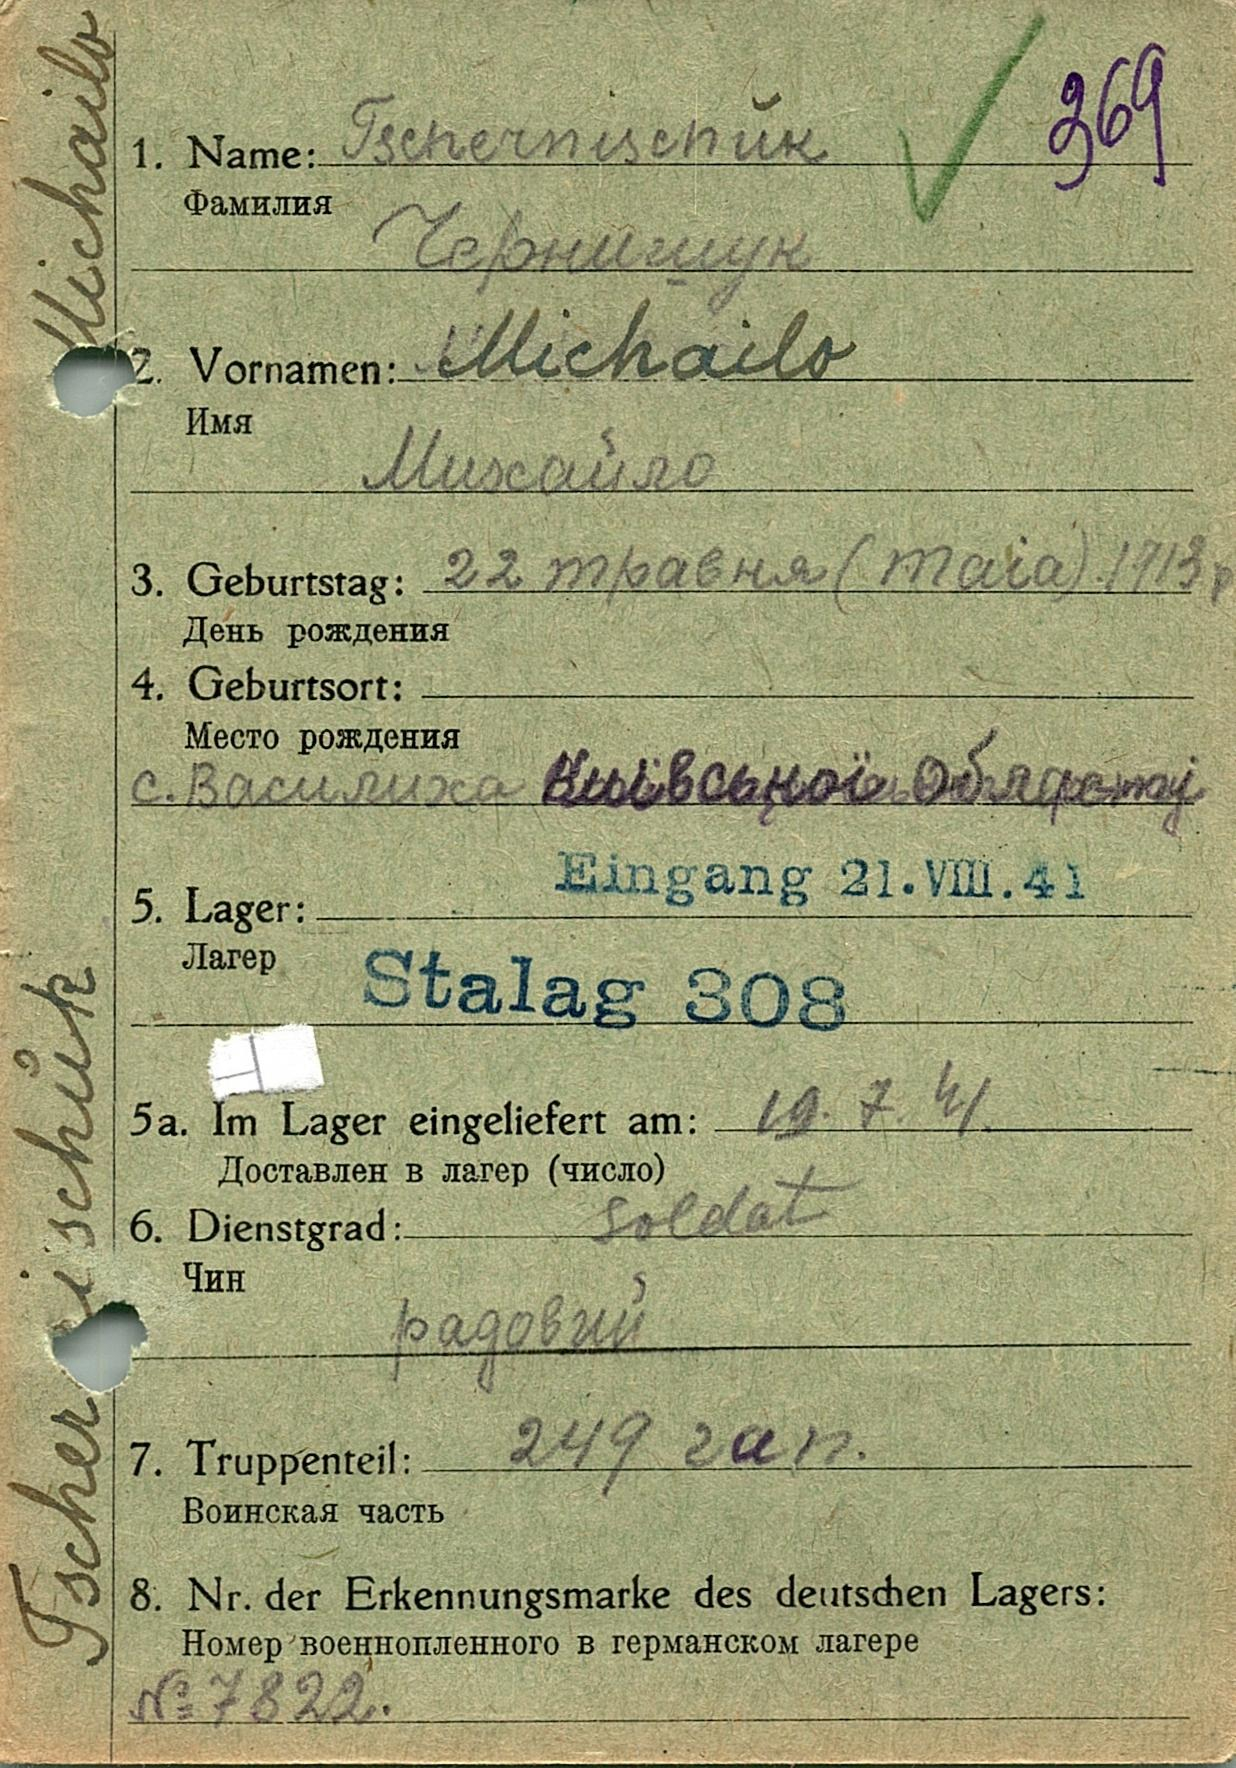 369
1. Name: Tschernischŭk
Фамилия
Чернишук
2. Vornamen: Michailo
Имя
Михайло
3. Geburtstag: 22 травня (маia). 1913 р
День рождения
4. Geburtsort:
Место рождения
с. Василиха Київської Області
Eingang 21.VIII.41
5. Lager:
Лагер
Stalag 308
5a. Im Lager eingeliefert am: 19. 7. 41.
Доставлен в лагер (число)
6. Dienstgrad: Soldat
Чин
радовий
7. Truppenteil: 249 гап.
Воинская часть
8. Nr. der Erkennungsmarke des deutschen Lagers:
Номер военнопленного в германском лагере
№ 7822.
Tschernischŭk Michailo